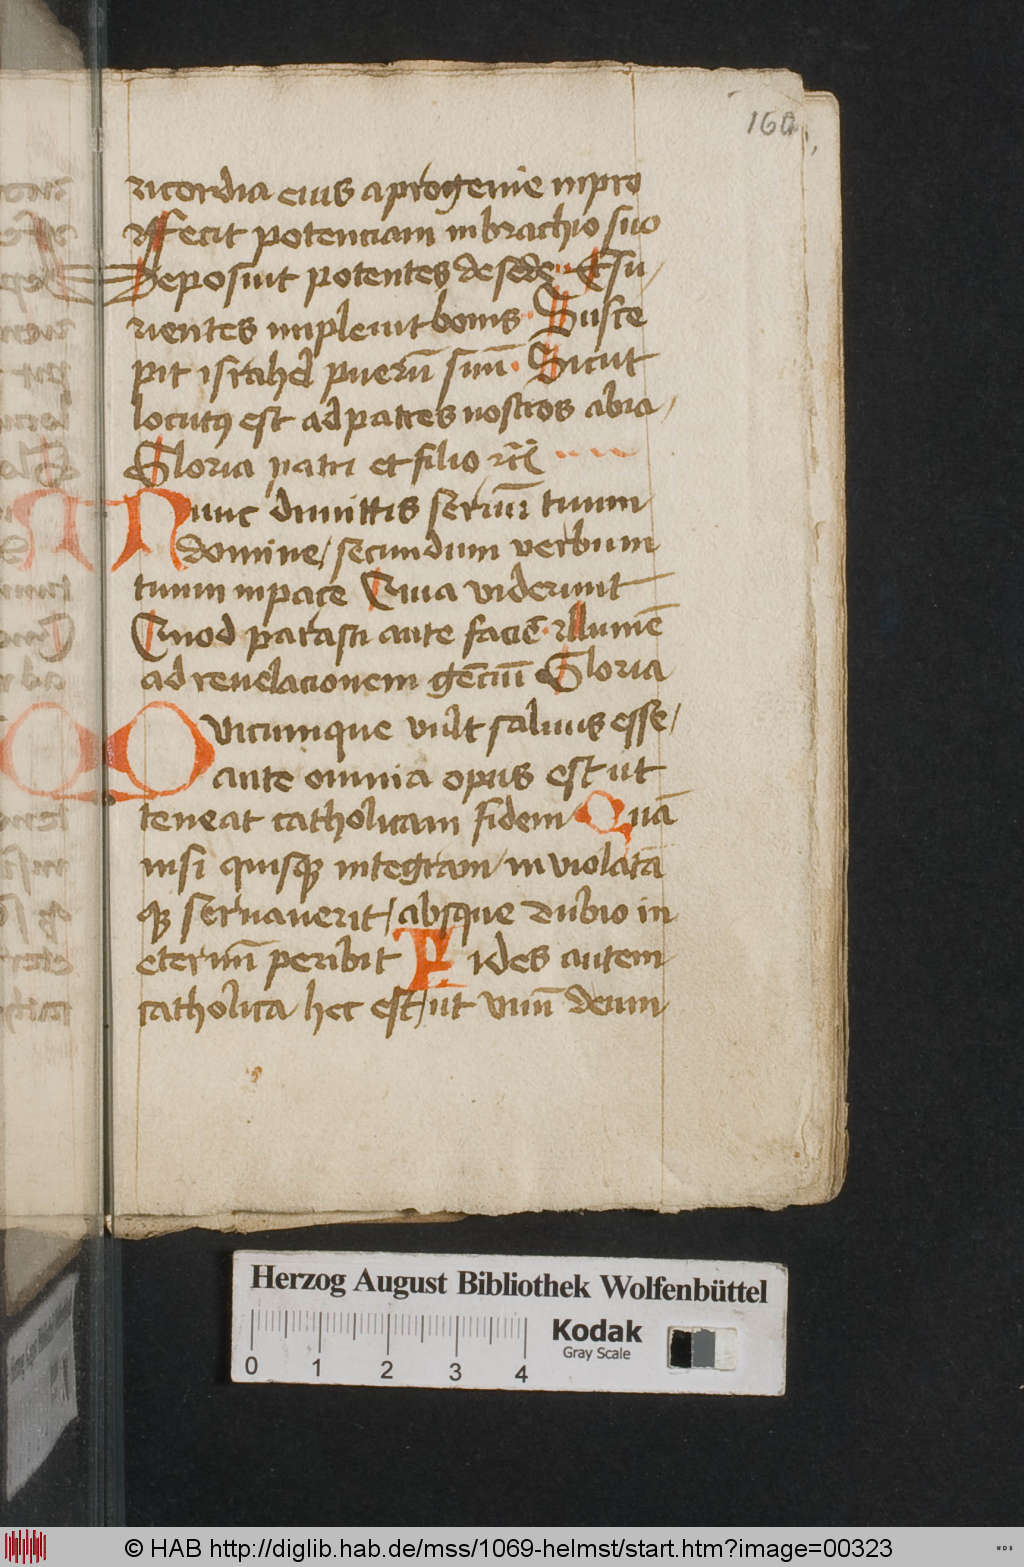 160
ricordia eius a progenie in pro
ffecit potenciam in brachio suo
Deposuit potentes de sede Esu/
rientes impleuit bonis Susce
pit israhel puerū suū Sicut
locutꝰ est ad patres nostros abra/
Gloria patri et filio
Nunc dimittis seruū tuum
domine/ secundum verbum
tuum in pace Quia viderunt
Quod parasti ante faciē illumē
ad reuelacionem gēciū Gloria
Quicumque vult saluus esse/
ante omnia opus est ut
teneat catholicam fidem Quā
nisi quisqꝫ integram inviolatā
qꝫ seruauerit/ absque dubio in
eternū peribit Fides autem
catholica hec est/ ut vnū deum
Herzog August Bibliothek Wolfenbüttel
Kodak
Gray Scale
0 1 2 3 4
© HAB http://diglib.hab.de/mss/1069-helmst/start.htm?image=00323